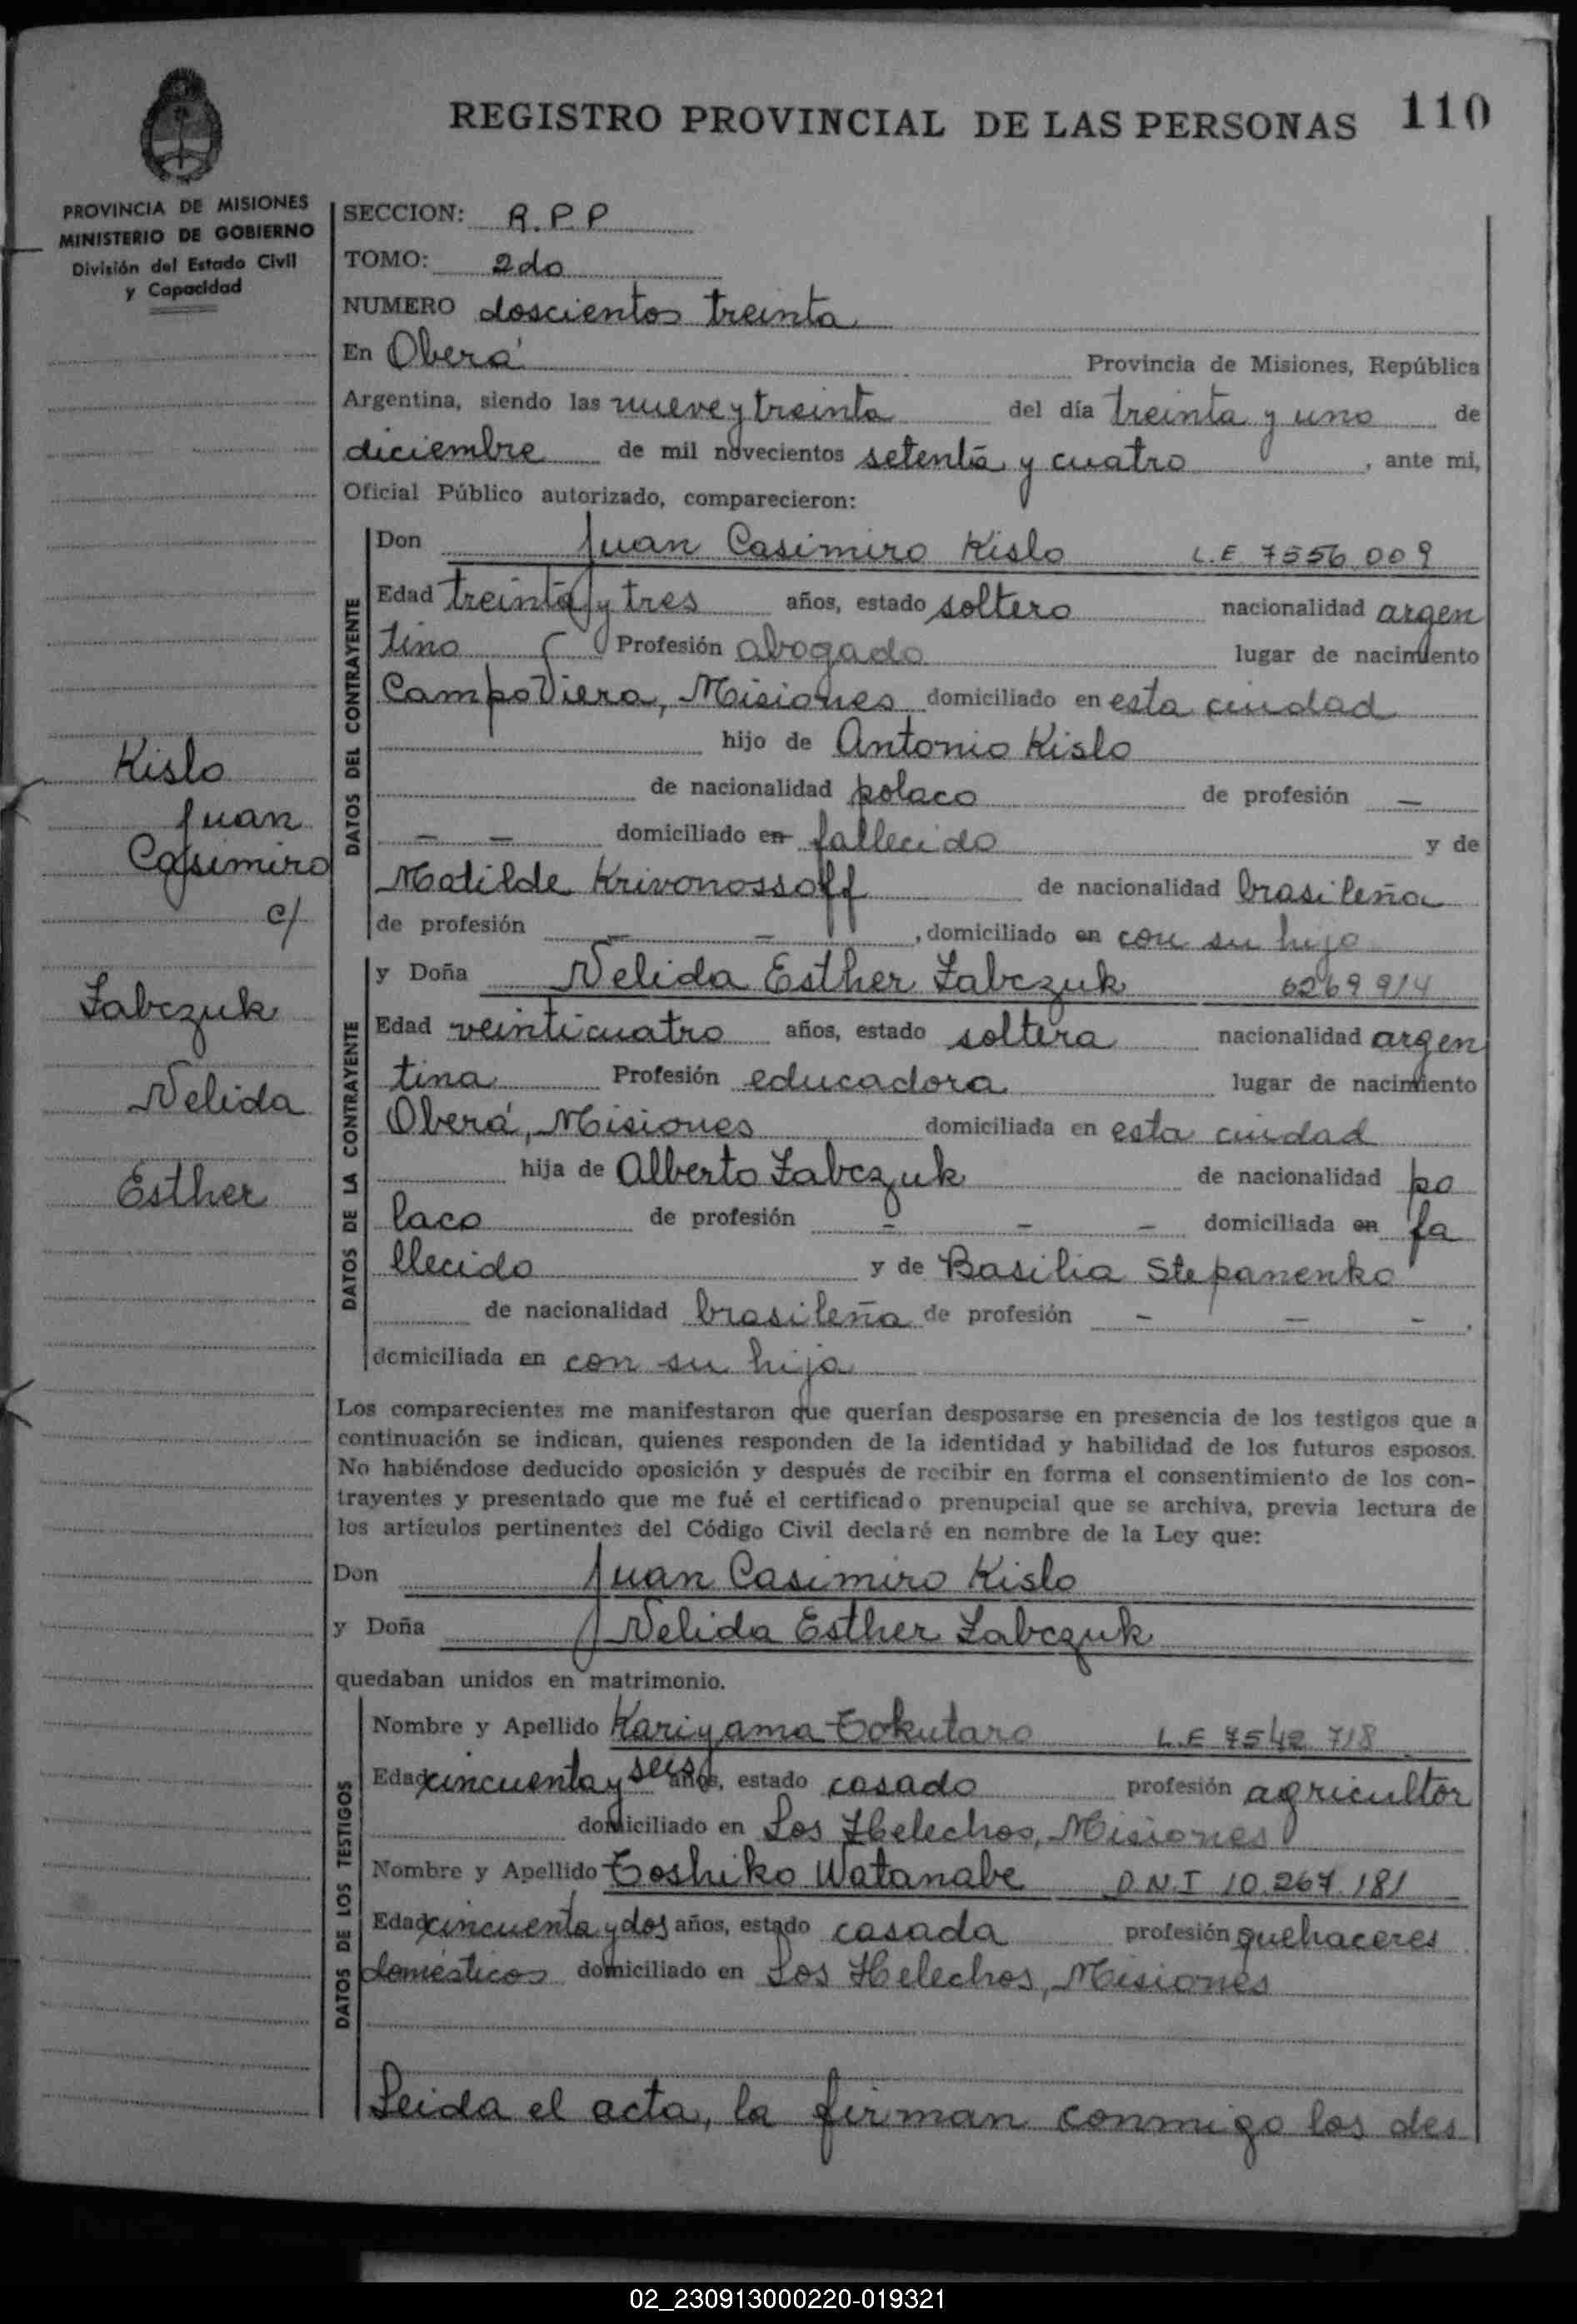 REGISTRO PROVINCIAL DE LAS PERSONAS 110
PROVINCIA DE MISIONES
MINISTERIO DE GOBIERNO
División del Estado Civil
y Capacidad
SECCION: R.P.P
TOMO: 2do
NUMERO doscientos treinta
En Oberá Provincia de Misiones, República
Argentina, siendo las nueve y treinta del día treinta y uno de
diciembre de mil novecientos setenta y cuatro, ante mi,
Oficial Público autorizado, comparecieron:
DATOS DEL CONTRAYENTE
Don Juan Casimiro Kislo L.E. 7556.009
Edad treinta y tres años, estado soltero nacionalidad argen
tino Profesión abogado lugar de nacimiento
Campo Viera, Misiones domiciliado en esta ciudad
hijo de Antonio Kislo
de nacionalidad polaco de profesión —
— — domiciliado en fallecido y de
Matilde Krivonossoff de nacionalidad brasileña
de profesión — —, domiciliado en con su hijo
Kislo
Juan
Casimiro
c/
Zabczuk
Nelida
Esther
DATOS DE LA CONTRAYENTE
y Doña Nelida Esther Zabczuk 6269914
Edad veinticuatro años, estado soltera nacionalidad argen
tina Profesión educadora lugar de nacimiento
Oberá, Misiones domiciliada en esta ciudad
hija de Alberto Zabczuk de nacionalidad po
laco de profesión - - - domiciliada en fa
llecido y de Basilia Stepanenko
de nacionalidad brasileña de profesión - - -.
domiciliada en con su hija
Los comparecientes me manifestaron que querían desposarse en presencia de los testigos que a
continuación se indican, quienes responden de la identidad y habilidad de los futuros esposos.
No habiéndose deducido oposición y después de recibir en forma el consentimiento de los con-
trayentes y presentado que me fué el certificado prenupcial que se archiva, previa lectura de
los artículos pertinentes del Código Civil declaré en nombre de la Ley que:
Don Juan Casimiro Kislo
y Doña Nelida Esther Zabczuk
quedaban unidos en matrimonio.
DATOS DE LOS TESTIGOS
Nombre y Apellido Kariyama Tokutaro L.E 7542.718
Edad cincuenta y seis años, estado casado profesión agricultor
domiciliado en Los Helechos, Misiones
Nombre y Apellido Toshiko Watanabe D.N.I 10.267.181
Edad cincuenta y dos años, estado casada profesión quehaceres
domésticos domiciliado en Los Helechos, Misiones
Leida el acta, la firman conmigo los des
02_230913000220-019321